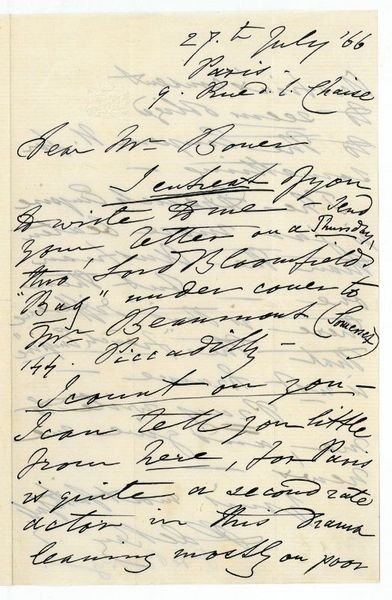 27.th July '66
Paris -
9. Rue d. l. Chaise
Dear Mr Boner
I entreat of you
to write to me - Send
your letter on a Thursday,
thro' Lord Bloomfield's
"Bag" under cover to
Mr. Beaumont (Somerset)
144. Piccadilly -
I count on you -
I can tell you little
from here, for Paris
is quite a second rate
actor in this Drama
leaning mostly on poor